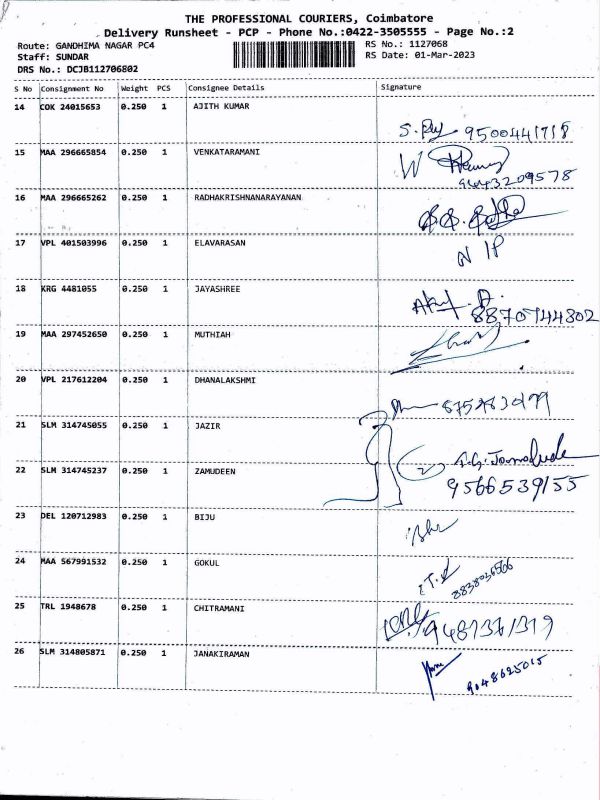 THE PROFESSIONAL COURIERS, Coimbatore
Delivery Runsheet - PCP - Phone No.:0422-3505555 - Page No.:2
Route: GANDHIMA NAGAR PC4 RS No.: 1127068
Staff: SUNDAR RS Date: 01-Mar-2023
DRS No.: DCJB112706802
S No Consignment No Weight PCS Consignee Details Signature
14 COK 24015653 0.250 1 AJITH KUMAR
9500441718
15 MAA 296665854 0.250 1 VENKATARAMANI
9443209578
16 MAA 296665262 0.250 1 RADHAKRISHNANARAYANAN
17 VPL 401503996 0.250 1 ELAVARASAN
N IP
18 KRG 4481055 0.250 1 JAYASHREE
8870744802
19 MAA 297452650 0.250 1 MUTHIAH
20 VPL 217612204 0.250 1 DHANALAKSHMI
21 SLM 314745055 0.250 1 JAZIR
2
22 SLM 314745237 0.250 1 ZAMUDEEN
9566539155
23 DEL 120712983 0.250 1 BIJU
24 MAA 567991532 0.250 1 GOKUL
25 TRL 1948678 0.250 1 CHITRAMANI
26 SLM 314805871 0.250 1 JANAKIRAMAN
9048625015